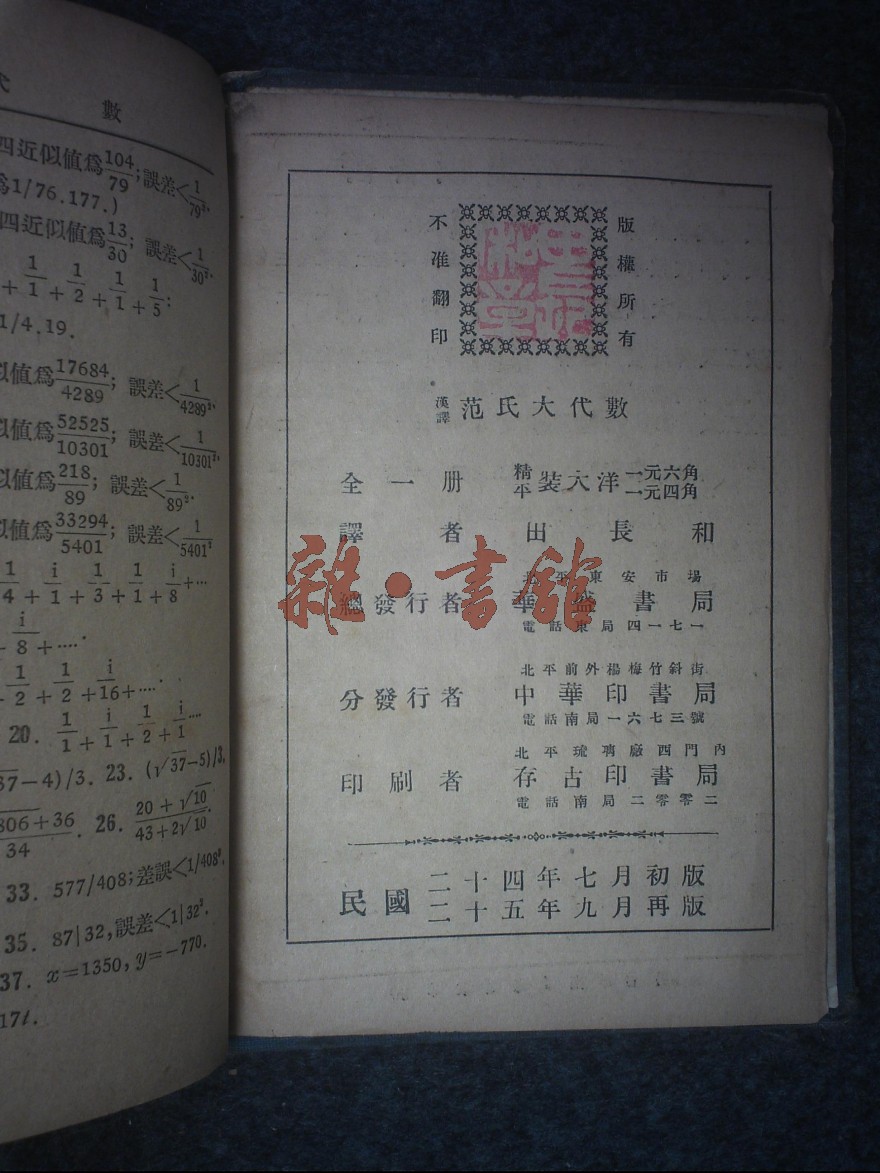 數
四近似值爲104/79; 誤差<1/79².
爲1/76.177.)
四近似值爲13/30; 誤差<1/30².
+ 1/1 + 1/2 + 1/1 + 1/5;
1/4.19.
似值爲17684/4289; 誤差<1/4289².
似值爲52525/10301; 誤差<1/10301².
似值爲218/89; 誤差<1/89².
似值爲33294/5401; 誤差<1/5401²
1/4 + 1/1 + 1/3 + 1/1 + 1/8 +...
1/8 +....
1/2 + 1/2 + 1/16 +....
20. 1/1 + 1/1 + 1/2 + 1/1 ....
37−4)/3. 23. (√37−5)/3.
806+36/34. 26. 20 + √10/43+2√10.
33. 577/408; 差誤<1/408².
35. 87|32, 誤差<1|32².
37. x=1350, y=−770.
17t.
版權所有
不准翻印
漢譯 范氏大代數
全一册 精裝大洋一元六角 平裝大洋一元四角
譯者 田長和
北平東安市場
總發行者 華盛書局
電話東局四一七一
北平前外楊梅竹斜街
分發行者 中華印書局
電話南局一六七三號
北平琉璃廠西門內
印刷者 存古印書局
電話南局二零零二
民國二十四年七月初版
二十五年九月再版
雜·書館